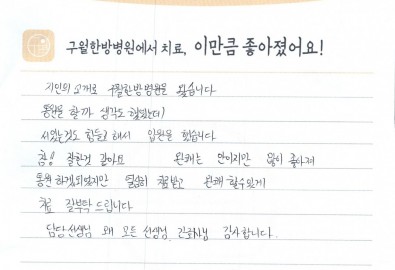 구월한방병원에서 치료, 이만큼 좋아졌어요!
지인의 소개로 구월한방병원을 왔습니다
통원을 할까 생각도 했었는데
서있는것도 힘들고 해서 입원을 했습니다
참 잘한것 같아요 완쾌는 안이지만 많이 좋아져
통원 하겠되었지만 열심히 치료받고 완쾌 할수있게
치료 잘부탁 드립니다
담당선생님 외 모든 선생님, 간호사님 감사합니다.